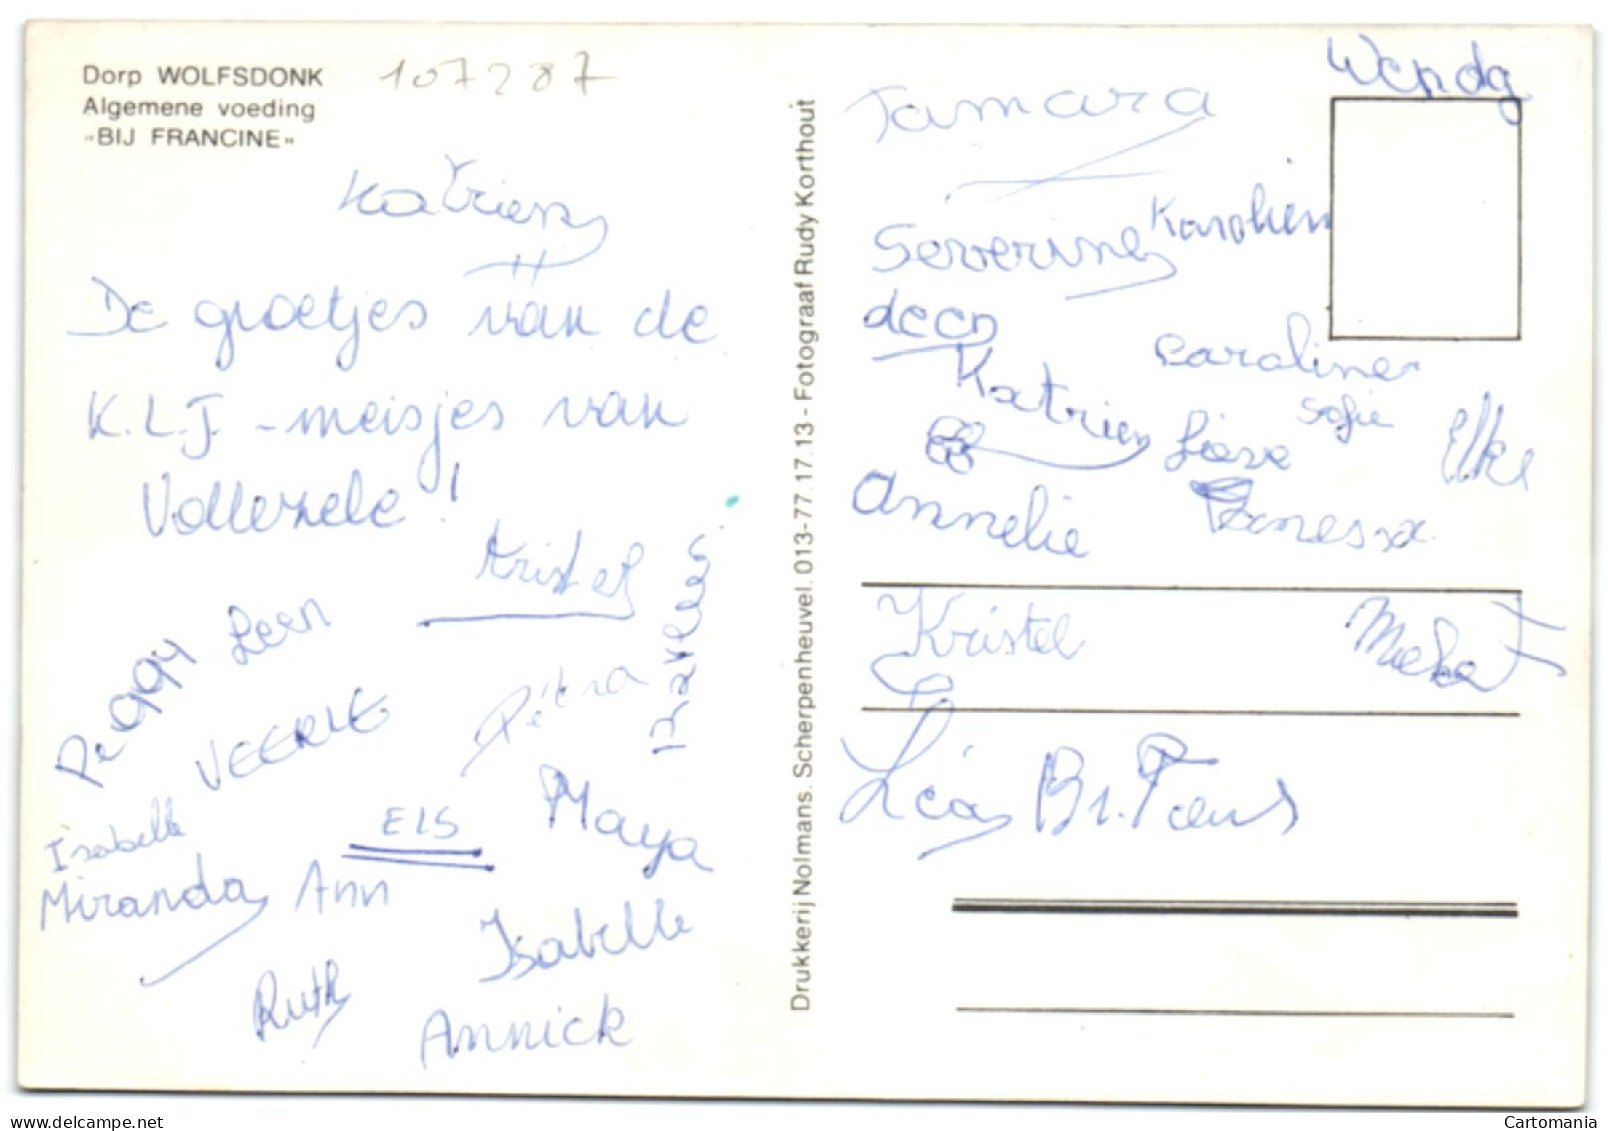 Dorp WOLFSDONK
Algemene voeding
«BIJ FRANCINE»
107287
Katrien
De groetjes van de
K.L.J. - meisjes van
Vollezele!
Kristel
Leen
Peggy
VEERLE
Pétra
Isabelle
ELS
Maya
Miranda
Ann
Isabelle
Ruth
Annick
Drukkerij Nolmans. Scherpenheuvel. 013-77.17.13 - Fotograaf Rudy Korthout
Wendy
Tamara
Karolien
Severine
Caroline
Katrien
Sofie
Elke
Lieve
Annelie
Vanessa
Kristel
Mieke
Léa
delcampe.net
Cartomania